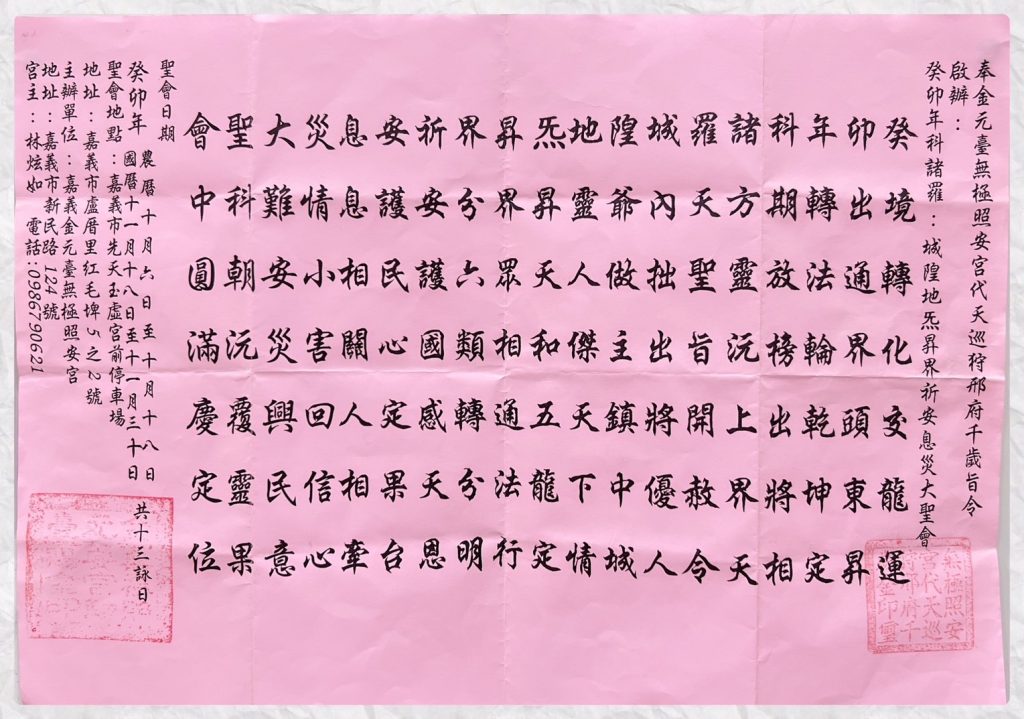 奉金元臺無極照安宮代天巡狩邢府千歲旨令
啟辦：
癸卯年科諸羅：城隍地炁昇界祈安息災大聖會
癸境轉化交龍運
卯出通界頭東昇
年轉法輪乾坤定
科期放榜出將相
諸方靈沅上界天
羅天聖旨開赦令
城內拙出將優人
隍爺做主鎮中城
地靈人傑天下情
炁昇天和五龍定
昇界眾相通法行
界分六類轉分明
祈安護國感天恩
安護民心定果台
息息相關人相牽
災情小害回信心
大難安災興民意
聖科朝沅覆靈果
會中圓滿慶定位
聖會日期
癸卯年
農曆十月六日至十月十八日
國曆十一月十八日至十一月三十日
共十三詠日
聖會地點：嘉義市先天玉虛宮前停車場
地址：嘉義市盧厝里紅毛埤5之12號
主辦單位：嘉義金元臺無極照安宮
地址：嘉義市新民路124號
宮主：林炫如 電話:0986790621
無極照安
宮代天巡
邢府千
金印璽